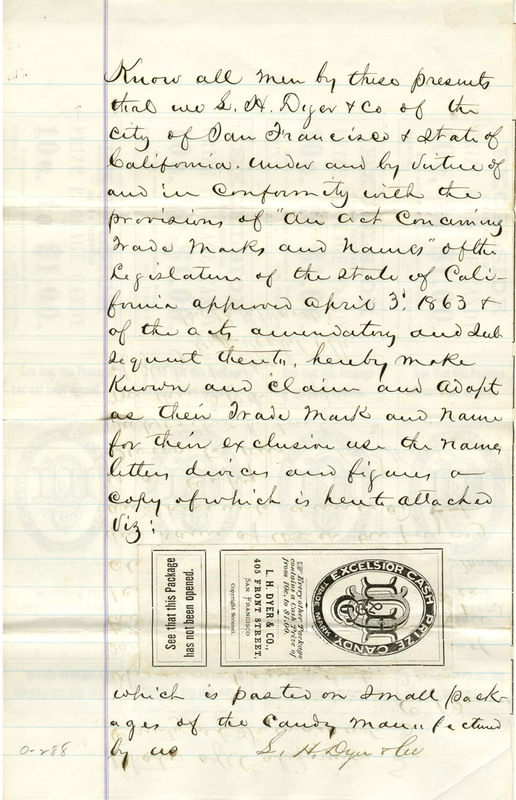 Know all men by these presents
that we L. H. Dyer & Co of the
city of San Francisco & State of
California. Under and by virtue of
and in conformity with the
provisions of "An Act Concerning
Trade Marks and Names" of the
Legislature of the State of Cali-
fornia approved April 3d 1863 &
of the acts amendatory and sub
sequent thereto, hereby make
Known and claim and adopt
as their Trade Mark and Name
for their exclusive use the names
letters devices and figures a
copy of which is hereto attached
Viz:
See that this Package
has not been opened.
Every other Package
contains a Cash Prize of
from 10c. to $1.00.
L. H. DYER & CO.,
405 FRONT STREET,
SAN FRANCISCO
Copyright Secured.
EXCELSIOR CASH PRIZE CANDY
TRADE MARK
which is pasted on small pack-
ages of the candy manufactured
by us L. H. Dyer & Co
0-288